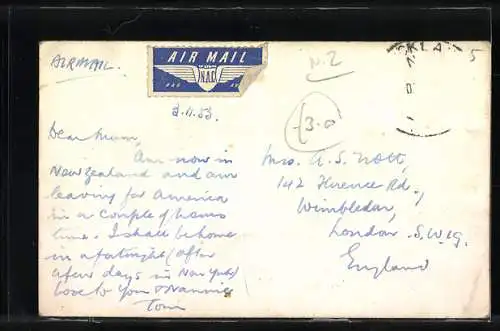 AIRMAIL.
AIR MAIL
NAC
N.Z
3.11.53.
3-0
5
Dear Mum,
Am now in
New Zealand and am
leaving for America
in a couple of hours
time. I shall be home
in a fortnight (after
a few days in New York)
love to you & Nannie
Tom
Mrs. A. S. Nott,
142 Florence Rd.,
Wimbledon,
London. S.W.19.
England